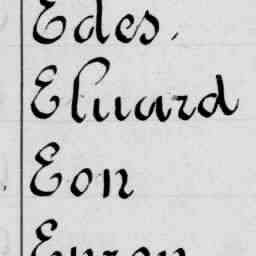 Edes.
Eluard
Eon